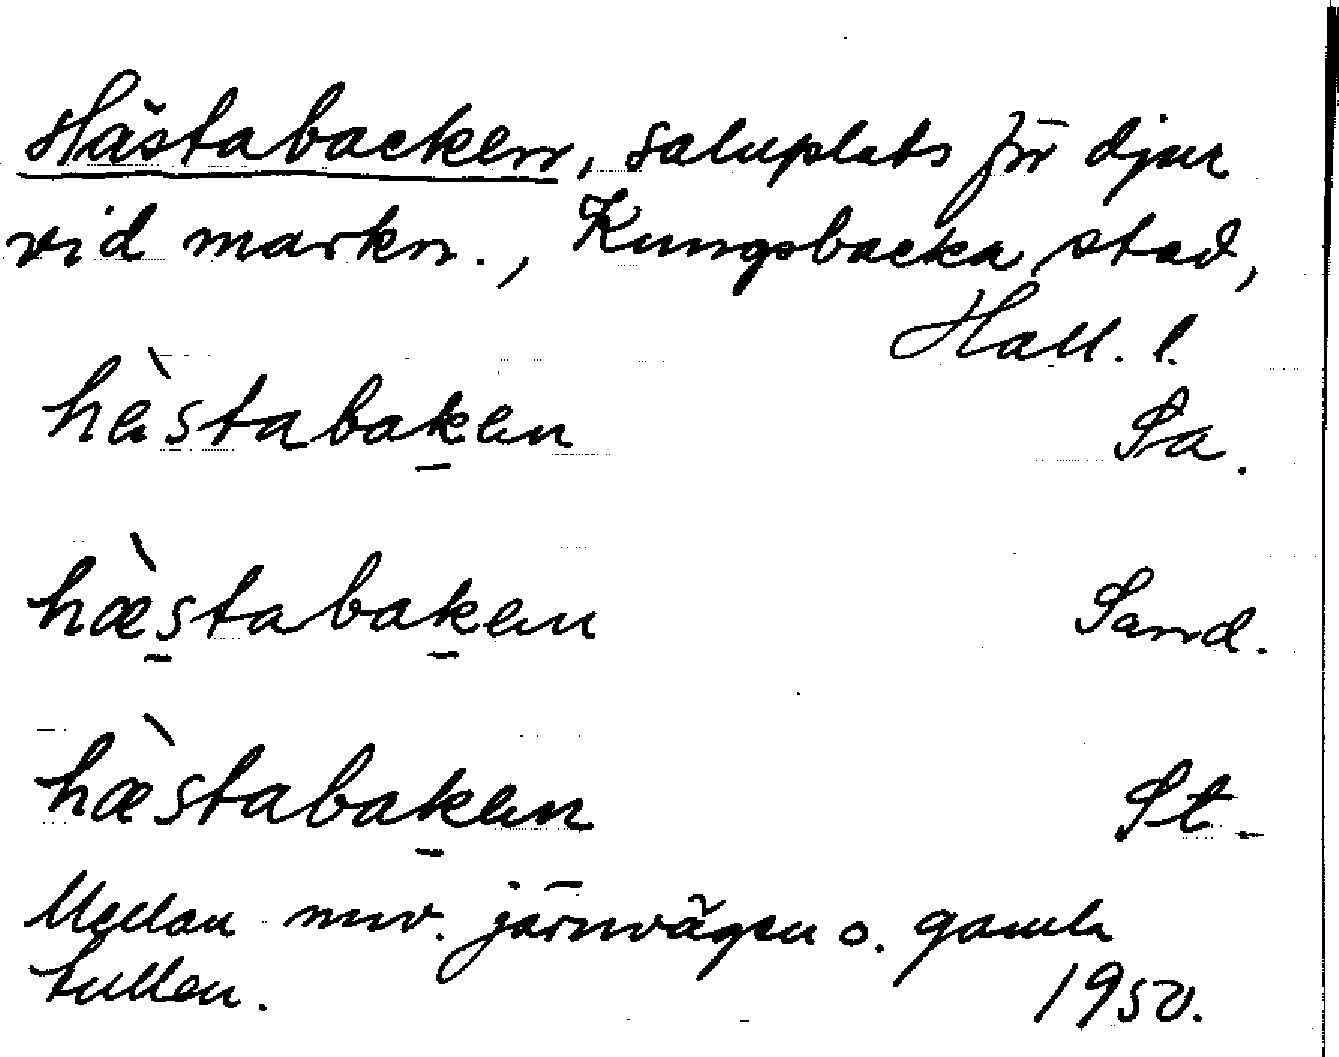 Hästabacken, saluplats för djur
vid markn., Kungsbacka stad,
Hall. l.
hæ̀stabak̲en Sa.
hæ̀s̲tabak̲en Sand.
hæ̀stabak̲en St.
Mellan nuv. järnvägen o. gamla
tullen. 1950.